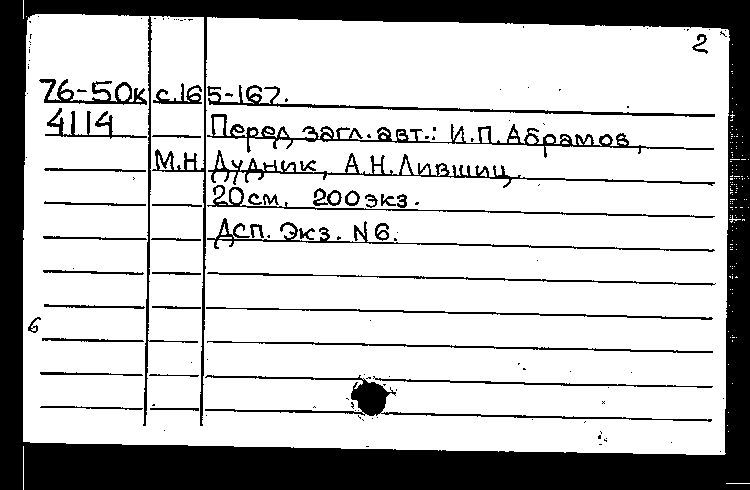 2
76-50к с.165-167.
4114 Перед загл. авт.: И.П.Абрамов,
М.Н.Дудник, А.Н.Лившиц.
20см. 200экз.
Дсп. Экз. N6.
6